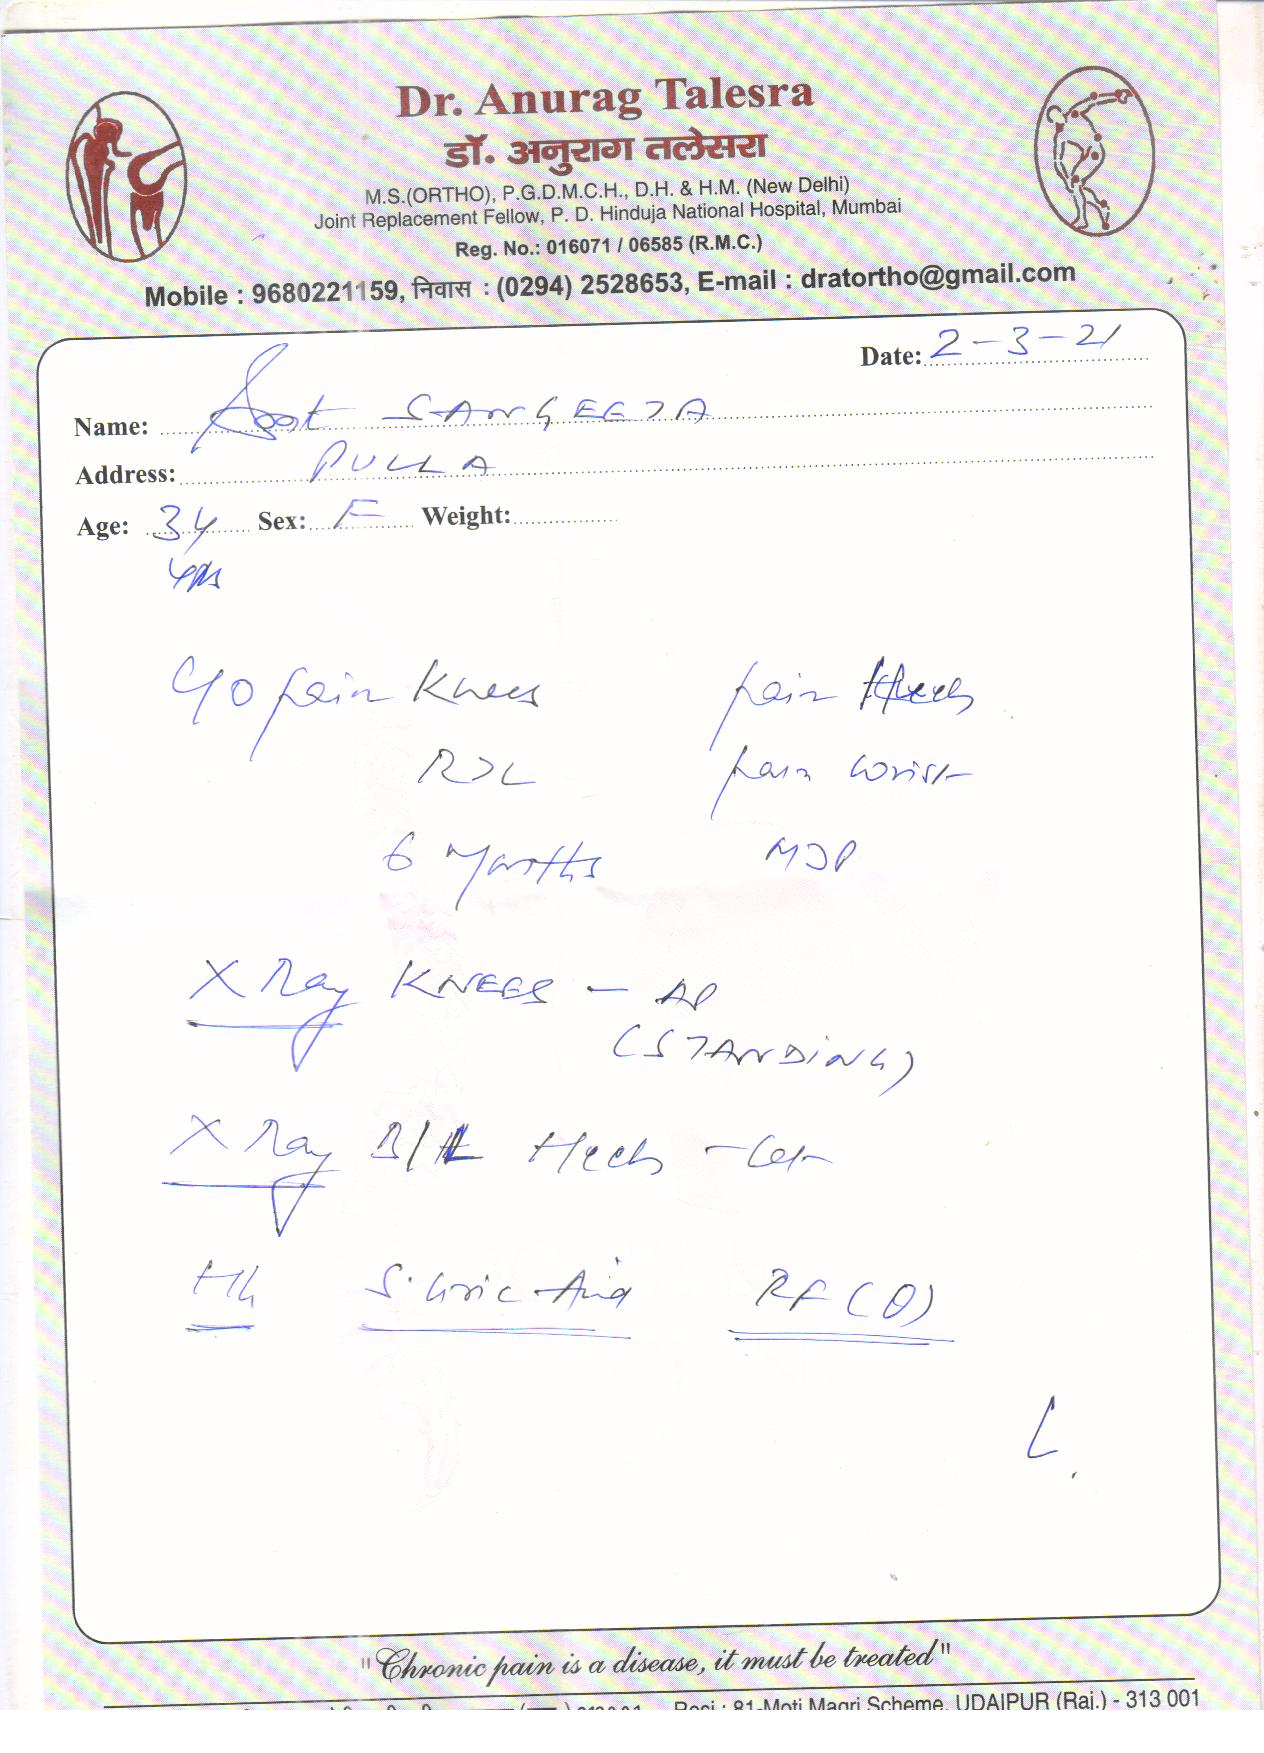 Dr. Anurag Talesra
डॉ. अनुराग तलेसरा
M.S.(ORTHO), P.G.D.M.C.H., D.H. & H.M. (New Delhi)
Joint Replacement Fellow, P. D. Hinduja National Hospital, Mumbai
Reg. No.: 016071 / 06585 (R.M.C.)
Mobile : 9680221159, निवास : (0294) 2528653, E-mail : dratortho@gmail.com
Date: 2-3-21
Name: SANGEETA
Address: PULLA
Age: 34 Sex: F Weight:
yrs
C/O pain Knees pain Heels
R>L pain wrist
6 Months
X Ray KNEES - AP
(STANDING)
X Ray B/L Heels - Lat
Hb S. Uric Acid RF (Q)
"Chronic pain is a disease, it must be treated"
Resi : 81-Moti Magri Scheme, UDAIPUR (Raj.) - 313 001